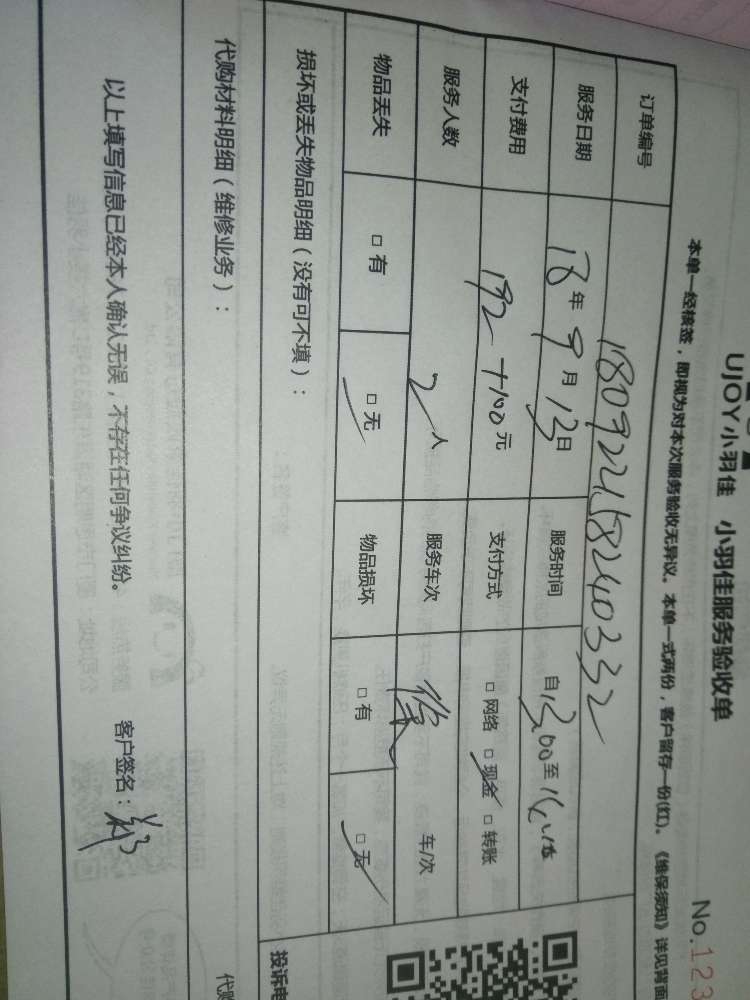 UJOY小羽佳 小羽佳服务验收单
No.123
本单一经核签，即视为对本次服务验收无异议。本单一式两份，客户留存一份(红)。《维保须知》详见背面
订单编号
服务日期 18年9月13日 服务时间 自13:00至
支付费用 192+100元 支付方式 □网络 □现金 □转账
服务人数 2人 服务车次 车/次
物品丢失 □有 □无 物品损坏 □有 □无
损坏或丢失物品明细（没有可不填）：
投诉电
代购材料明细（维修业务）：
代
以上填写信息已经本人确认无误，不存在任何争议纠纷。 客户签名：